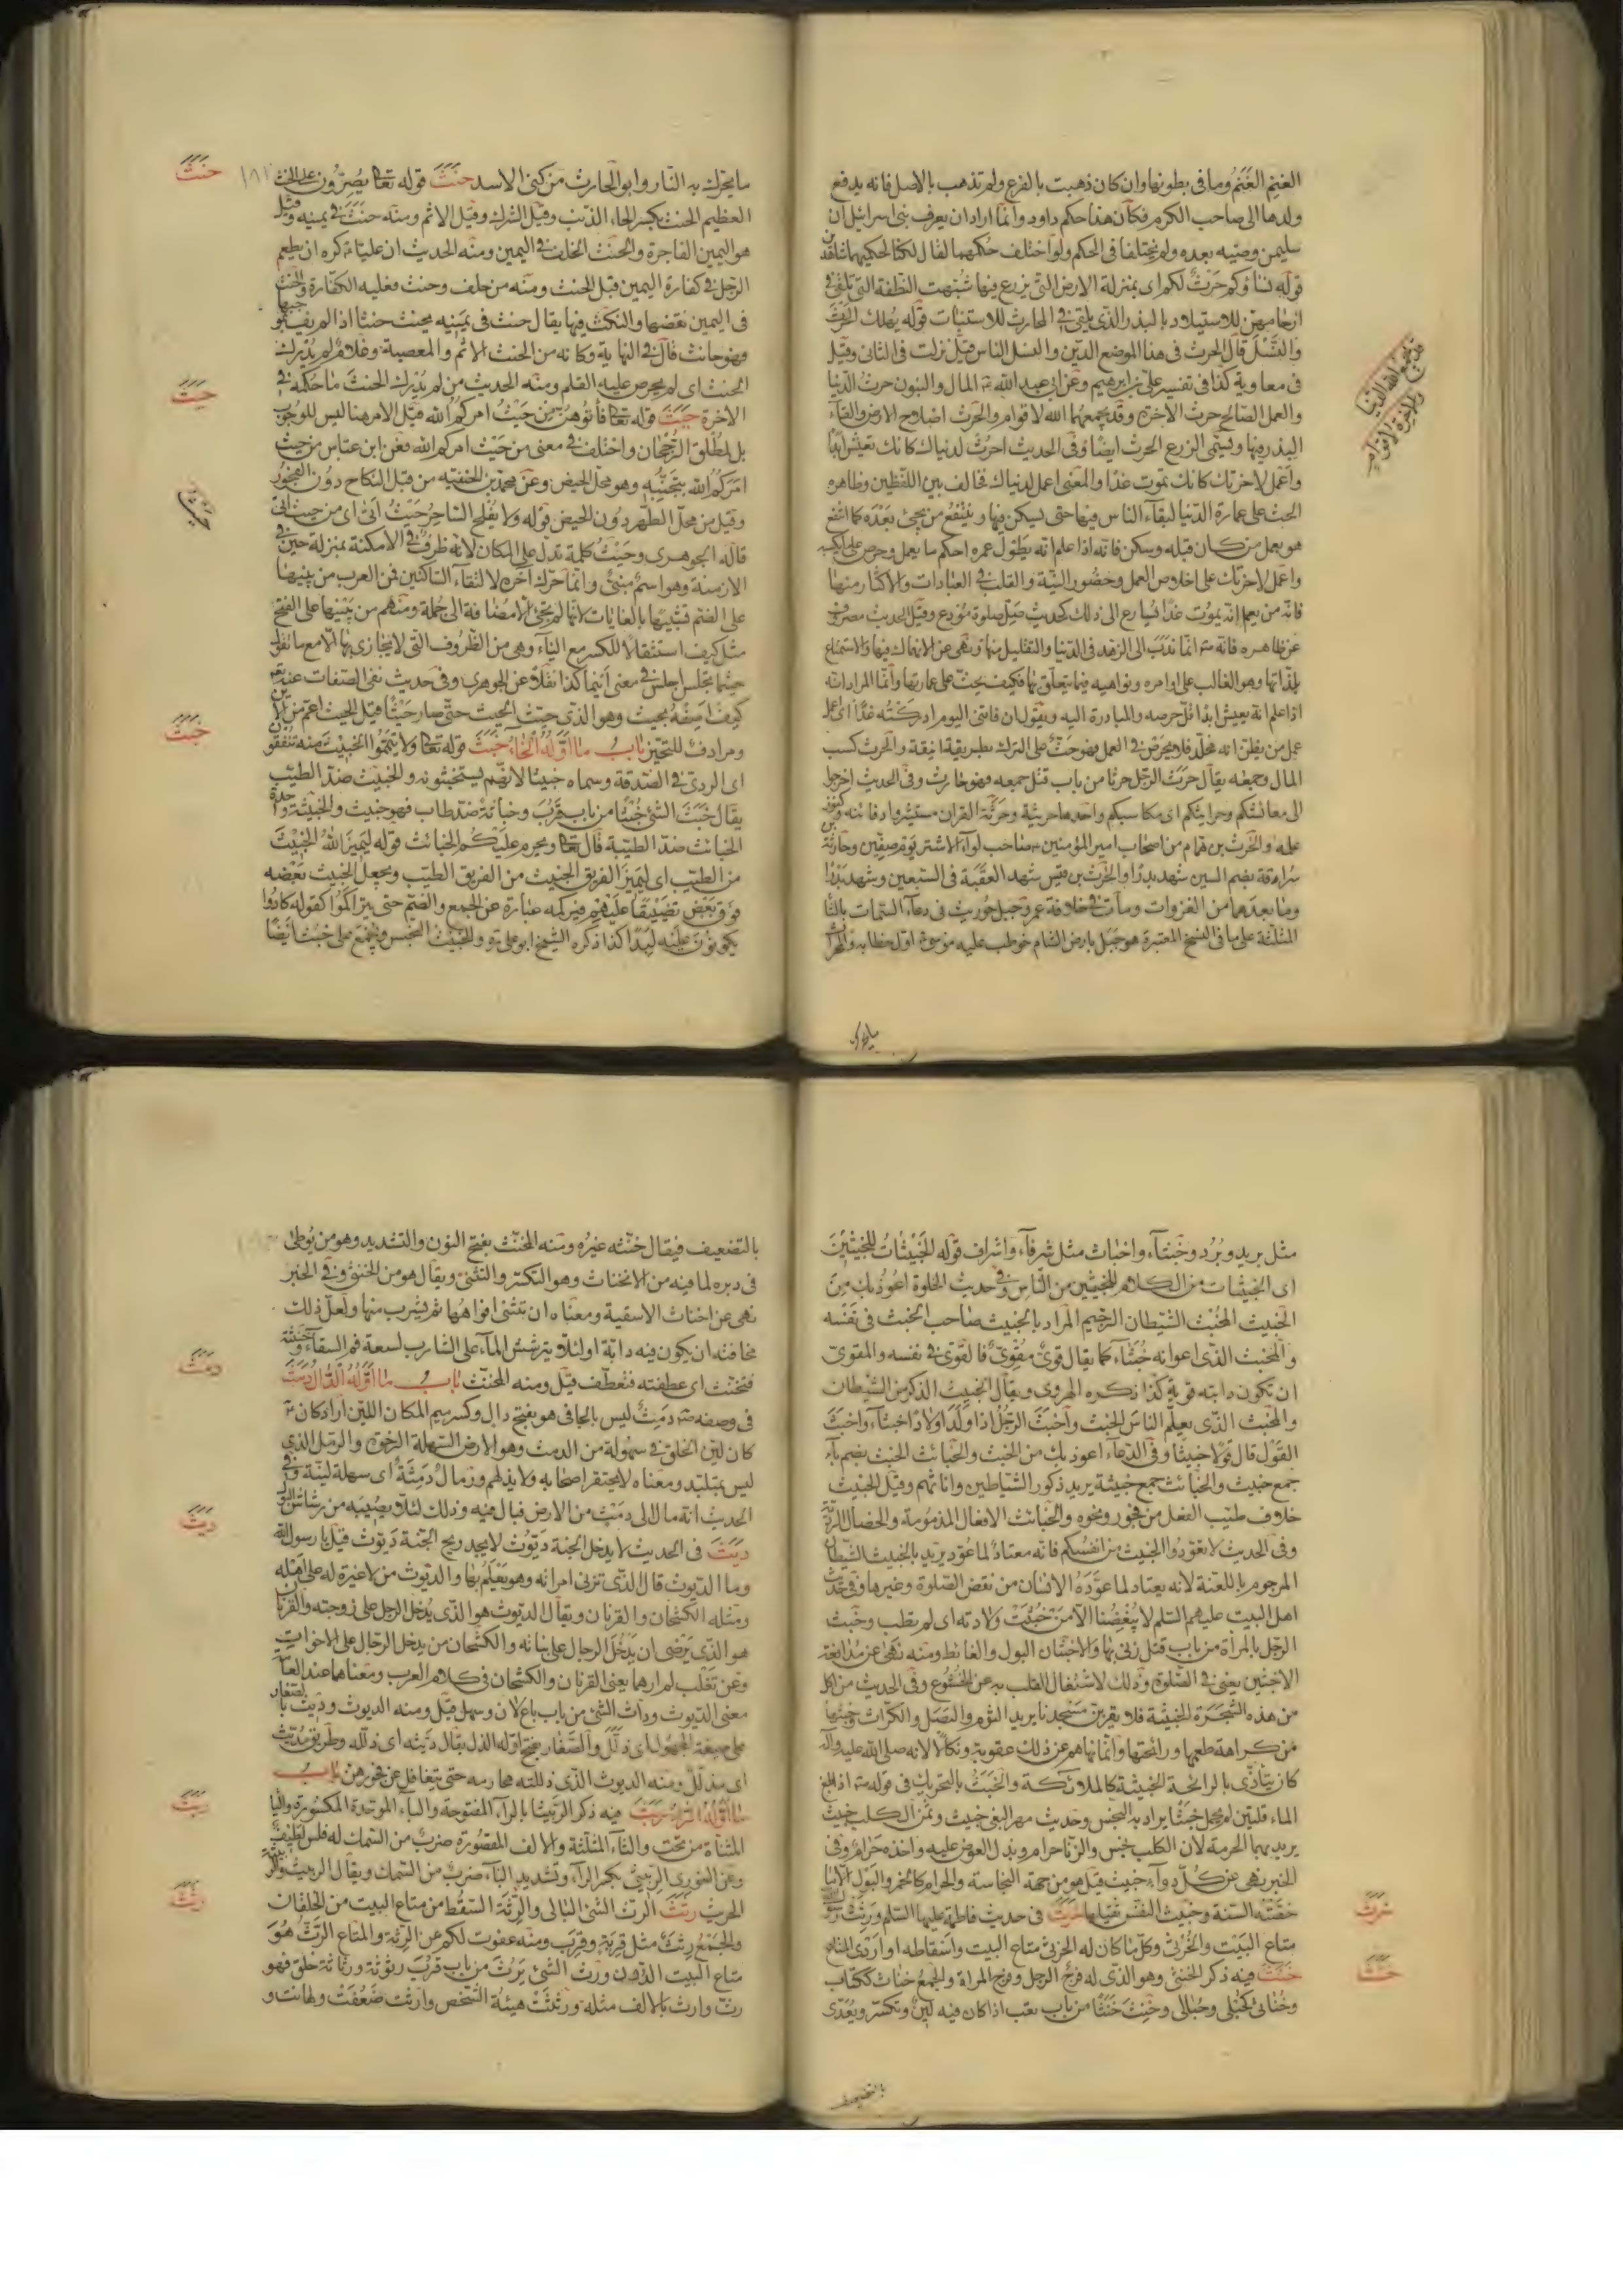 الغنم الغنم وما فى بطونها وان كان ذهبت بالفرع ولم تذهب بالاصل فانه يدفع
ولدها الى صاحب الكرم فكان هذا حكم داود وانما اراد ان يعرف بنى اسرائيل ان
سليمن وصيه بعده ولم يختلفا فى الحكم ولو اختلف حكمهما لقال لكنا لحكمهما شاهدين
قوله نساؤكم حرث لكم اى بمنزلة الارض التى يزرع فيها شبهت النطفة التى تلقى فى
ارحامهن للاستيلاد بالبذر الذى يلقى فى المحارث للاستنبات قوله يهلك الحرث
والنسل قال الحرث فى هذا الموضع الدين والنسل الناس قيل نزلت فى الثانى وقيل
فى معاوية كذا فى تفسير على بن ابرهيم وعن ابى عبد الله المال والبنون حرث الدنيا
والعمل الصالح حرث الاخرة وقد يجمعهما الله لاقوام والحرث اصلاح الارض والقاء
البذر فيها ويسمى الزرع الحرث ايضا وفى الحديث احرث لدنياك كانك تعيش ابدا
واعمل لاخرتك كانك تموت غدا والمعنى اعمل لدنياك فخالف بين اللفظين وظاهره
الحث على عمارة الدنيا لبقاء الناس فيها حتى يسكن فيها وينتفع من يجئ بعده كما انتفع
هو بعمل من كان قبله وسكن فانه اذا علم انه يطول عمره احكم ما يعمل وحرص على
واعمل لاخرتك على اخلاص العمل وحضور النية والقلب فى العبادات والاكثار منها
فانه من يعلم انه يموت غدا يسارع الى ذلك كحديث صل صلوة مودع وقيل الحديث مصروف
عن ظاهره فانه انما ندب الى الزهد فى الدنيا والتقليل منها ونهى عن الانهماك فيها والاستمتاع
بلذاتها وهو الغالب على اوامره ونواهيه فيما يتعلق بها فكيف يحث على عمارتها وانما المراد انه
اذا علم انه يعيش ابدا قل حرصه والمبادرة اليه ويقول ان فاتنى اليوم ادركته غدا اى اعمل
عمل من يظن انه مخلد فلا يحرص فى العمل فهو حث على الترك بطريقة انيقة والحرث كسب
المال وجمعه يقال حرث الرجل حرثا من باب قتل جمعه فهو حارث وفى الحديث اخرجوا
الى معائشكم وحرائثكم اى مكاسبكم واحدها حريثة وحرثة القران مستثيروا دفائنه وكنوز
علمه والحرث بن همام من اصحاب امير المؤمنين صاحب لواء الاشتر يوم صفين وحارثة بن
سراقة بضم السين شهد بدرا والحرث بن قيس شهد العقبة فى السبعين وشهد بدرا
وما بعدهما من الغزوات ومات فى خلافة عمر وجبل حوريث فى دعاء السمات بالثا
المثلثة على ما فى النسخ المعتبرة هو جبل بارض الشام خوطب عليه موسى اول خطابه والحراث
قد يجمع الله الدنيا
والاخرة لاقوام
ما يحرك به النار وابو الحارث من كنى الاسد حنث قوله تعالى يصرون على الحنث
العظيم الحنث بكسر الحاء الذنب وقيل الشرك وقيل الاثم ومنه حنث فى يمينه وقيل
هو اليمين الفاجرة والحنث الخلف فى اليمين ومنه الحديث ان عليا كره ان يطعم
الرجل فى كفارة اليمين قبل الحنث ومنه من حلف وحنث فعليه الكفارة والحنث
فى اليمين نقضها والنكث فيها يقال حنث فى يمينه يحنث حنثا اذا لم يف بموجبها
فهو حانث قال فى النهاية وكانه من الحنث الاثم والمعصية وغلام لم يدرك
الحنث اى لم يجر عليه القلم ومنه الحديث من لم يدرك الحنث ما حكمه فى
الاخرة حيث قوله تعالى فأتوهن من حيث امركم الله قيل الامر هنا ليس للوجوب
بل لمطلق الرجحان واختلف فى معنى من حيث امركم الله فعن ابن عباس من حيث
امركم الله بتجنبه وهو محل الحيض وعن محمد بن الحنفيه من قبل النكاح دون الفجور
وقيل من محل الطهر دون الحيض قوله ولا يفلح الساحر حيث اتى اى من حيث اتى
قاله الجوهرى وحيث كلمة تدل على المكان لانه ظرف فى الامكنة بمنزلة حين فى
الازمنة وهو اسم مبنى وانما حرك اخره لالتقاء الساكنين فمن العرب من يبنيها
على الضم تشبيها بالغايات لانها لم تجئ الا مضافة الى جملة ومنهم من يبنيها على الفتح
مثل كيف استثقالا للكسر مع الياء وهى من الظروف التى لا يجازى بها الا مع ما تقول
حيثما تجلس اجلس فى معنى اينما كذا نقلا عن الجوهرى وفى حديث نفى الصفات عنه تعالى
كيف اصفه بحيث وهو الذى حيث الحيث حتى صار حيثا قيل الحيث اعم من الاين
ومرادف للتحيز باب ما اوله الخاء خبث قوله تعالى ولا تيمموا الخبيث منه تنفقون
اى الردئ فى الصدقة وسماه خبيثا لانهم يستخبثونه والخبيث ضد الطيب
يقال خبث الشئ خبثا من باب قرب وخباثة ضد طاب فهو خبيث والخبيثة واحدة
الخبائث ضد الطيبة قال تعالى ويحرم عليكم الخبائث قوله ليميز الله الخبيث
من الطيب اى ليميز الفريق الخبيث من الفريق الطيب ويجعل الخبيث بعضه
فوق بعض تضييقا عليهم فيركمه عبارة عن الجمع والضم حتى يتراكموا كقوله كادوا
يكونون عليه لبدا كذا ذكره الشيخ ابو على والخبيث النجس ويجمع على خبث ايضا
حنث
حيث
حيث
خبث
مثل بريد وبرد وخبثاء واخباث مثل شرفاء واشراف قوله الخبيثات للخبيثين
اى الخبيثات من الكلام للخبيثين من الناس وفى حديث الخلوة اعوذ بك من
الخبيث المخبث الشيطان الرجيم المراد بالخبيث صاحب الخبث فى نفسه
والمخبث الذى اعوانه خبثاء كما يقال قوى مقوى فالقوى فى نفسه والمقوى
ان تكون دابته قوية كذا ذكره الهروى ويقال الخبيث الذكر من الشيطان
والمخبث الذى يعلم الناس الخبث واخبث الرجل اذا ولد اولادا خبثاء واخبث
القول قال قولا خبيثا وفى الدعاء اعوذ بك من الخبث والخبائث الخبث بضم باء
جمع خبيث والخبائث جمع خبيثة يريد ذكور الشياطين واناثهم وقيل الخبيث
خلاف طيب الفعل من فجور ونحوه والخبائث الافعال المذمومة والخصال الرديئة
وفى الحديث لا تعودوا الخبيث من انفسكم فانه معتاد لما عود يريد بالخبيث الشيطان
المرجوم باللعنة لانه يعتاد لما عوده الانسان من نقض الصلوة وغيرها وفى حديث
اهل البيت عليهم السلم لا يبغضنا الا من خبثت ولادته اى لم يطب وخبث
الرجل بالمراة من باب قتل زنى بها والاخبثان البول والغائط ومنه نهى عن مدافعة
الاخبثين يعنى فى الصلوة وذلك لاشتغال القلب به عن الخشوع وفى الحديث من اكل
من هذه الشجرة الخبيثة فلا يقربن مسجدنا يريد الثوم والبصل والكراث وخبثها
من كراهة طعمها ورائحتها وانما نهاهم عن ذلك عقوبة ونكالا لانه صلى الله عليه واله
كان يتاذى بالرائحة الخبيثة كالملائكة والخبث بالتحريك فى قوله اذا بلغ
الماء قلتين لم يحمل خبثا يراد به النجس وحديث مهر البغى خبيث وثمن الكلب خبيث
يريد بهما الحرمة لان الكلب نجس والزنا حرام وبذل العوض عليه واخذه حرام وفى
الخبر نهى عن كل دواء خبيث قيل هو من جهة النجاسة والحرام كالخمر والبول الا ما
خصته السنة وخبيث النفس ثقيلها خرث فى حديث فاطمة عليها السلم
متاع البيت والخرثى وكل ما كان له الخرثى متاع البيت واسقاطه او اردى المتاع
خنث فيه ذكر الخنثى وهو الذى له فرج الرجل وفرج المراة والجمع خناث ككتاب
وخناثى كحبلى وحبالى وخنث خنثا من باب تعب اذا كان فيه لين وتكسر ويعدى
خرث
خنث
بالتضعيف
بالتضعيف فيقال خنثه غيره ومنه المخنث بفتح النون والتشديد وهو من يوطئ
فى دبره لما فيه من الانخناث وهو التكسر والتثنى ويقال هو من الخنثى وفى الخبر
نهى عن اختناث الاسقية ومعناه ان تثنى افواهها ثم يشرب منها ولعل ذلك
مخافة ان يكون فيه دابة او لئلا يترشش الماء على الشارب لسعة فم السقاء وخنثته
فتخنث اى عطفته فتعطف قيل ومنه المخنث باب ما اوله الدال دمث
فى وصفه دمث ليس بالجافى هو بفتح دال وكسر ميم المكان اللين اراد كان
كان لين الخلق فى سهولة من الدمث وهو الارض السهلة الرخوة والرمل الذى
ليس بمتلبد ومعناه لا يحتقر اصحابه ولا يذلهم ورمال دمثة اى سهلة لينة وفى
الحديث انه مال الى دمث من الارض فبال فيه وذلك لئلا يصيبه من رشاش البول
ديث فى الحديث لا يدخل الجنة ديوث لا يجد ريح الجنة ديوث قيل يا رسول الله
وما الديوث قال الذى تزنى امراته وهو يعلم بها والديوث من لا غيرة له على اهله
ومثله الكشحان والقرنان ويقال الديوث هو الذى يدخل الرجل على زوجته والقرنان
هو الذى يرضى ان يدخل الرجال على بناته والكشحان من يدخل الرجال على الاخوات
وعن ثعلب لم ارهما يعنى القرنان والكشحان فى كلام العرب ومعناهما عند العامة
معنى الديوث وداث الشئ من باب باع لان وسهل قيل ومنه الديوث وديث بالصغار
على صيغة المجهول اى ذلل والصغار بفتح اوله الذل يقال ديثه اى ذلله وطريق مديث
اى مذلل ومنه الديوث الذى ذللته محارمه حتى يتغافل عن فجورهن باب
ما اوله الراء ربث فيه ذكر الربيثا بالراء المفتوحة والباء الموحدة المكسورة واليا
المثناة من تحت والثاء المثلثة والالف المقصورة ضرب من السمك له فلس لطيف
وعن الغورى الربيثى بكسر الراء وتشديد الباء ضرب من السمك ويقال الربيث والربيثة
الجريث رثث الرث الشئ البالى والرثة السقط من متاع البيت من الخلقان
والجمع رثث مثل قربة وقرب ومنه عفوت لكم عن الرثة والمتاع الرث هو
متاع البيت الدون ورث الشئ يرث من باب قرب رثوثة ورثاثة خلق فهو
رث وارث بالالف مثله ورثثت هيئة الشخص وارثت ضعفت وهانت و
دمث
ديث
ربث
رثث